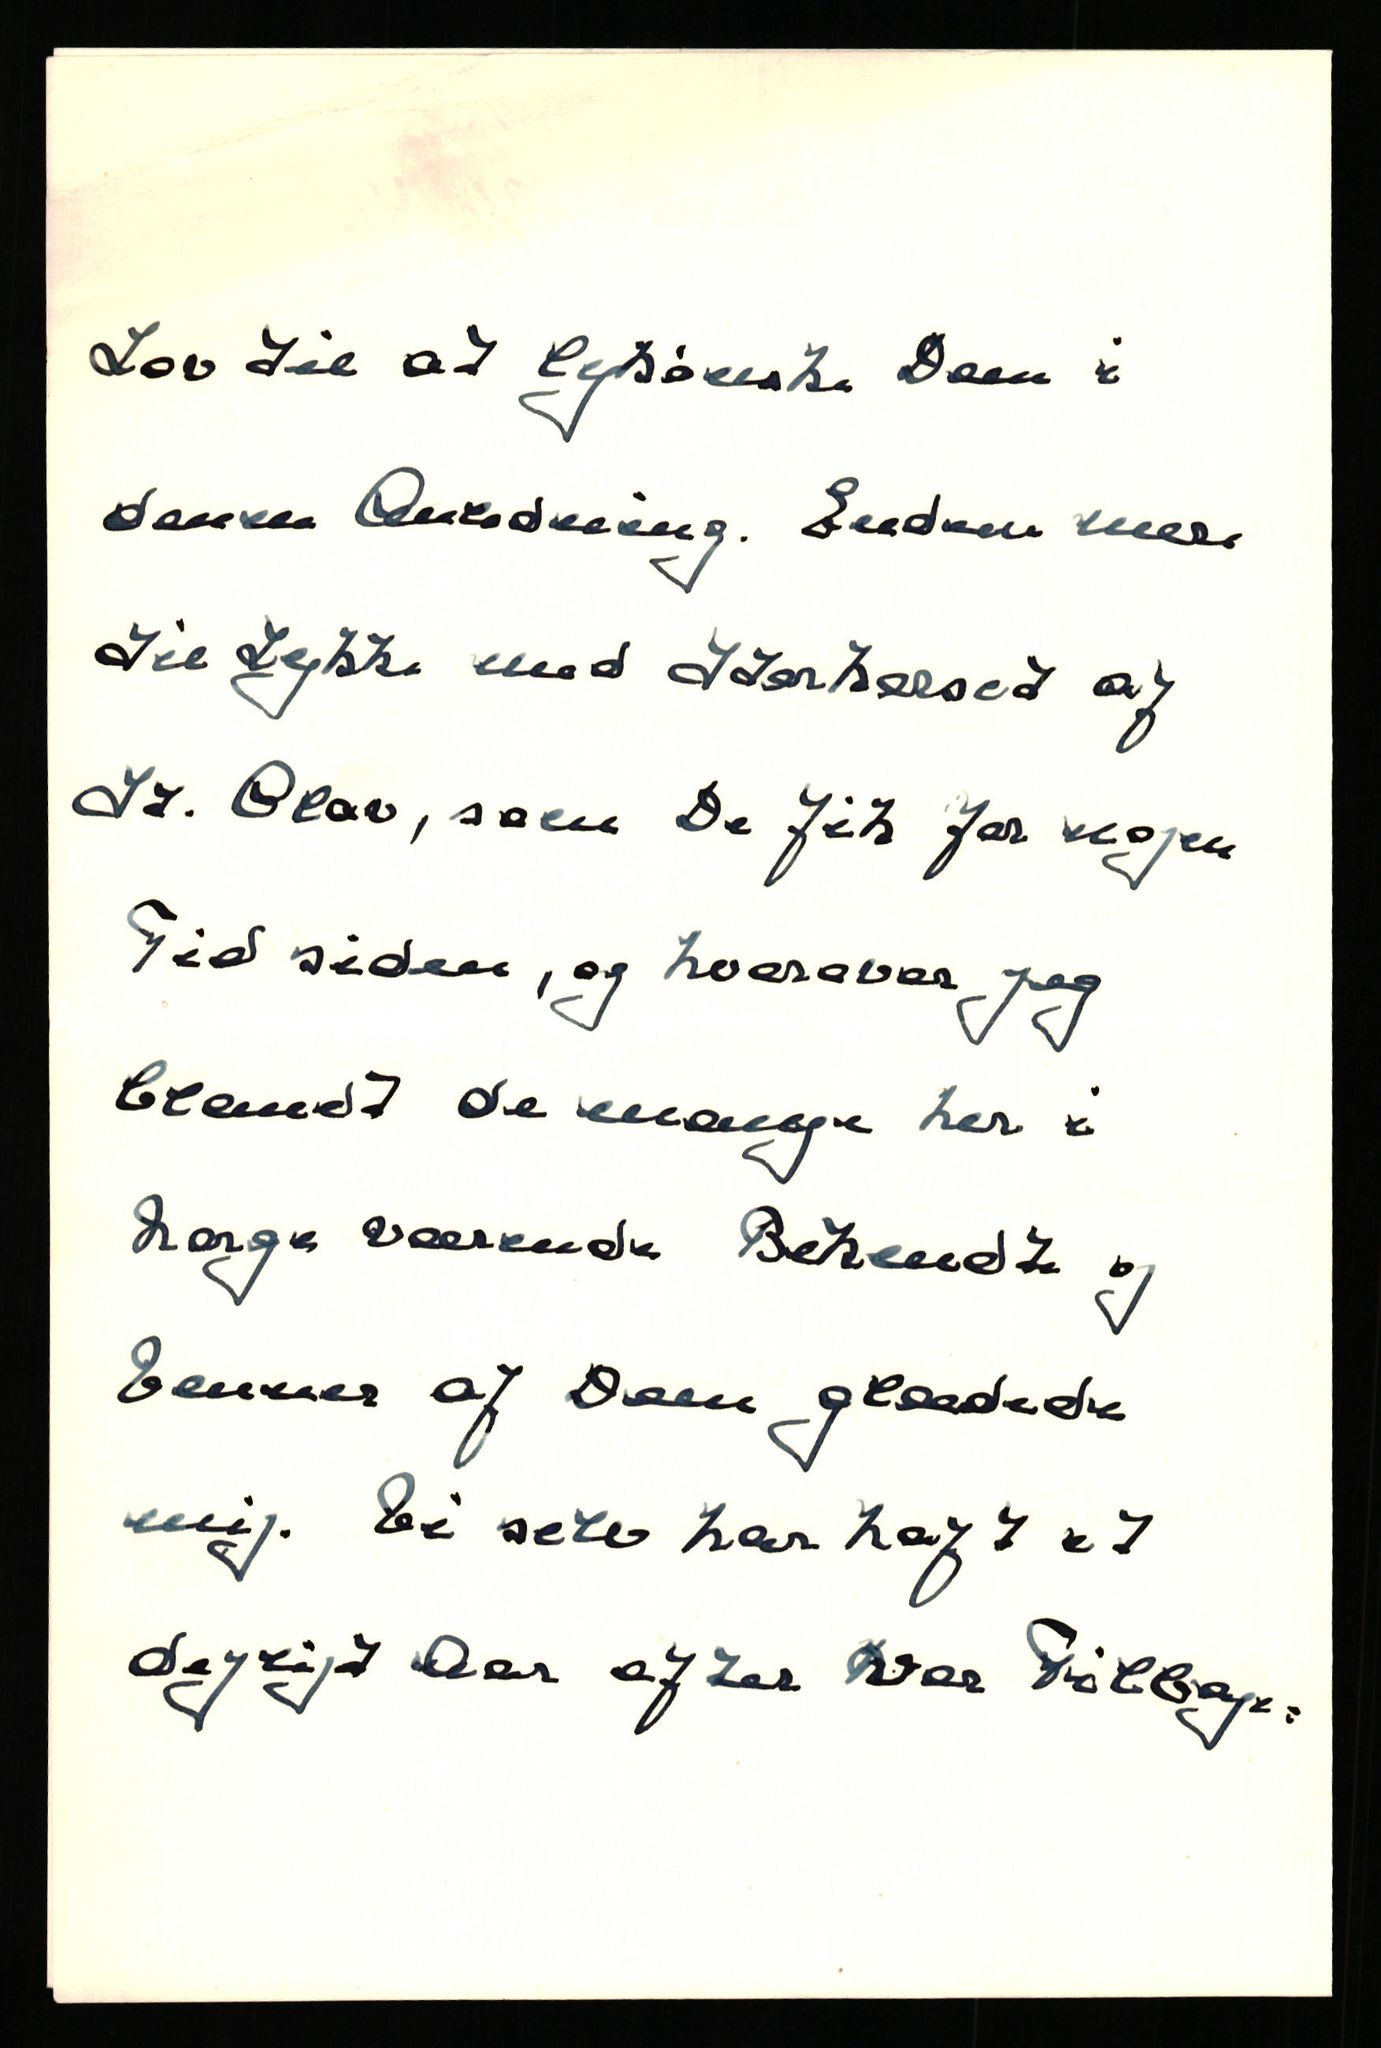 Lov til at lykønske Dem i
denne Anledning. Endnu mere
til Lykke med Storkorset af
St. Olav, som De fik for nogen
Tid siden, og hvorover jeg
blandt de mange her i
Norge værende Bekendte og
Venner af Dem glædede
mig. Vi selv har haft et
dejligt Aar efter vor Tilbage: